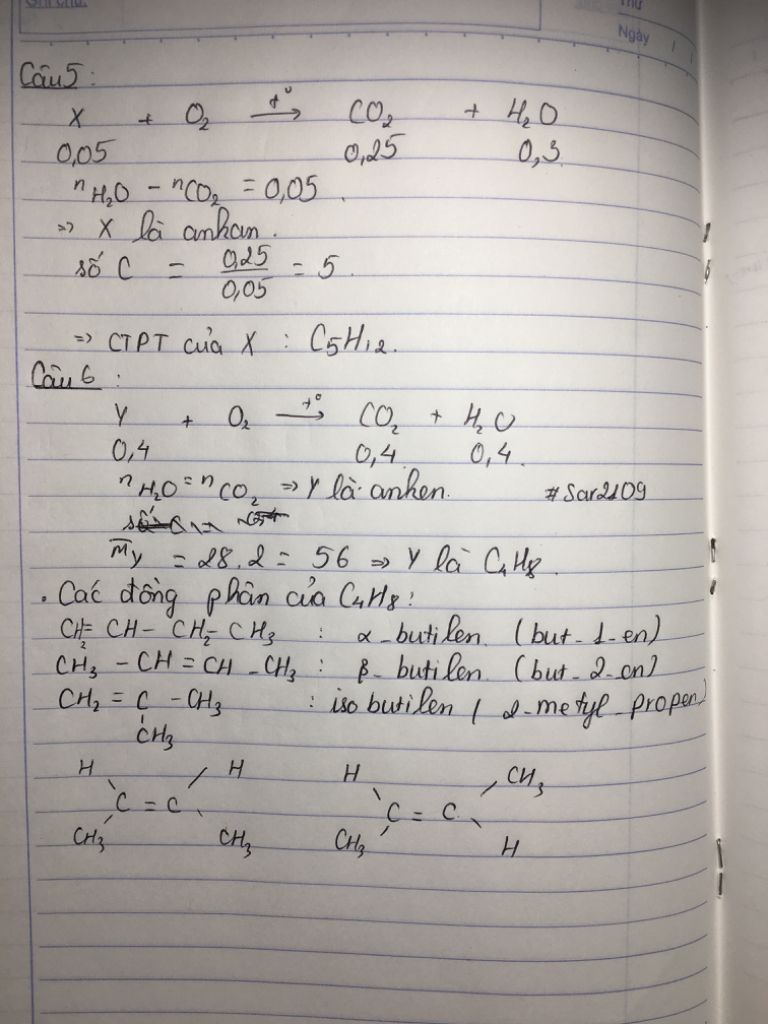 Ghi chú:
Thứ
Ngày / /
Câu 5 :
X + O₂ —t°→ CO₂ + H₂O
0,05 0,25 0,3
nH₂O − nCO₂ = 0,05 .
=> X là ankan .
số C = 0,25/0,05 = 5
=> CTPT của X : C₅H₁₂.
Câu 6 :
Y + O₂ —t°→ CO₂ + H₂O
0,4 0,4 0,4.
nH₂O = nCO₂ => Y là anken. #Sar2109
M̅y = 28.2 = 56 => Y là C₄H₈.
. Các đồng phân của C₄H₈:
CH₂= CH – CH₂ – CH₃ : α-butilen (but-1-en)
CH₃ – CH = CH – CH₃ : β-butilen (but-2-en)
CH₂ = C – CH₃ : iso butilen ( 2-metyl-propen)
CH₃
H H H CH₃
C = C C = C
CH₃ CH₃ CH₃ H